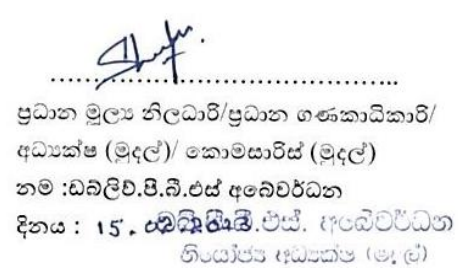 ප්‍රධාන මූල්‍ය නිලධාරි/ප්‍රධාන ගණකාධිකාරි/
අධ්‍යක්ෂ (මුදල්)/ කොමසාරිස් (මුදල්)
නම :ඩබ්ලිව්.පී.බී.එස් අබේවර්ධන
දිනය : 15.
ඩබ්.පී.බී.එස්. අබේවර්ධන
නියෝජ්‍ය අධ්‍යක්ෂ (මුදල්)